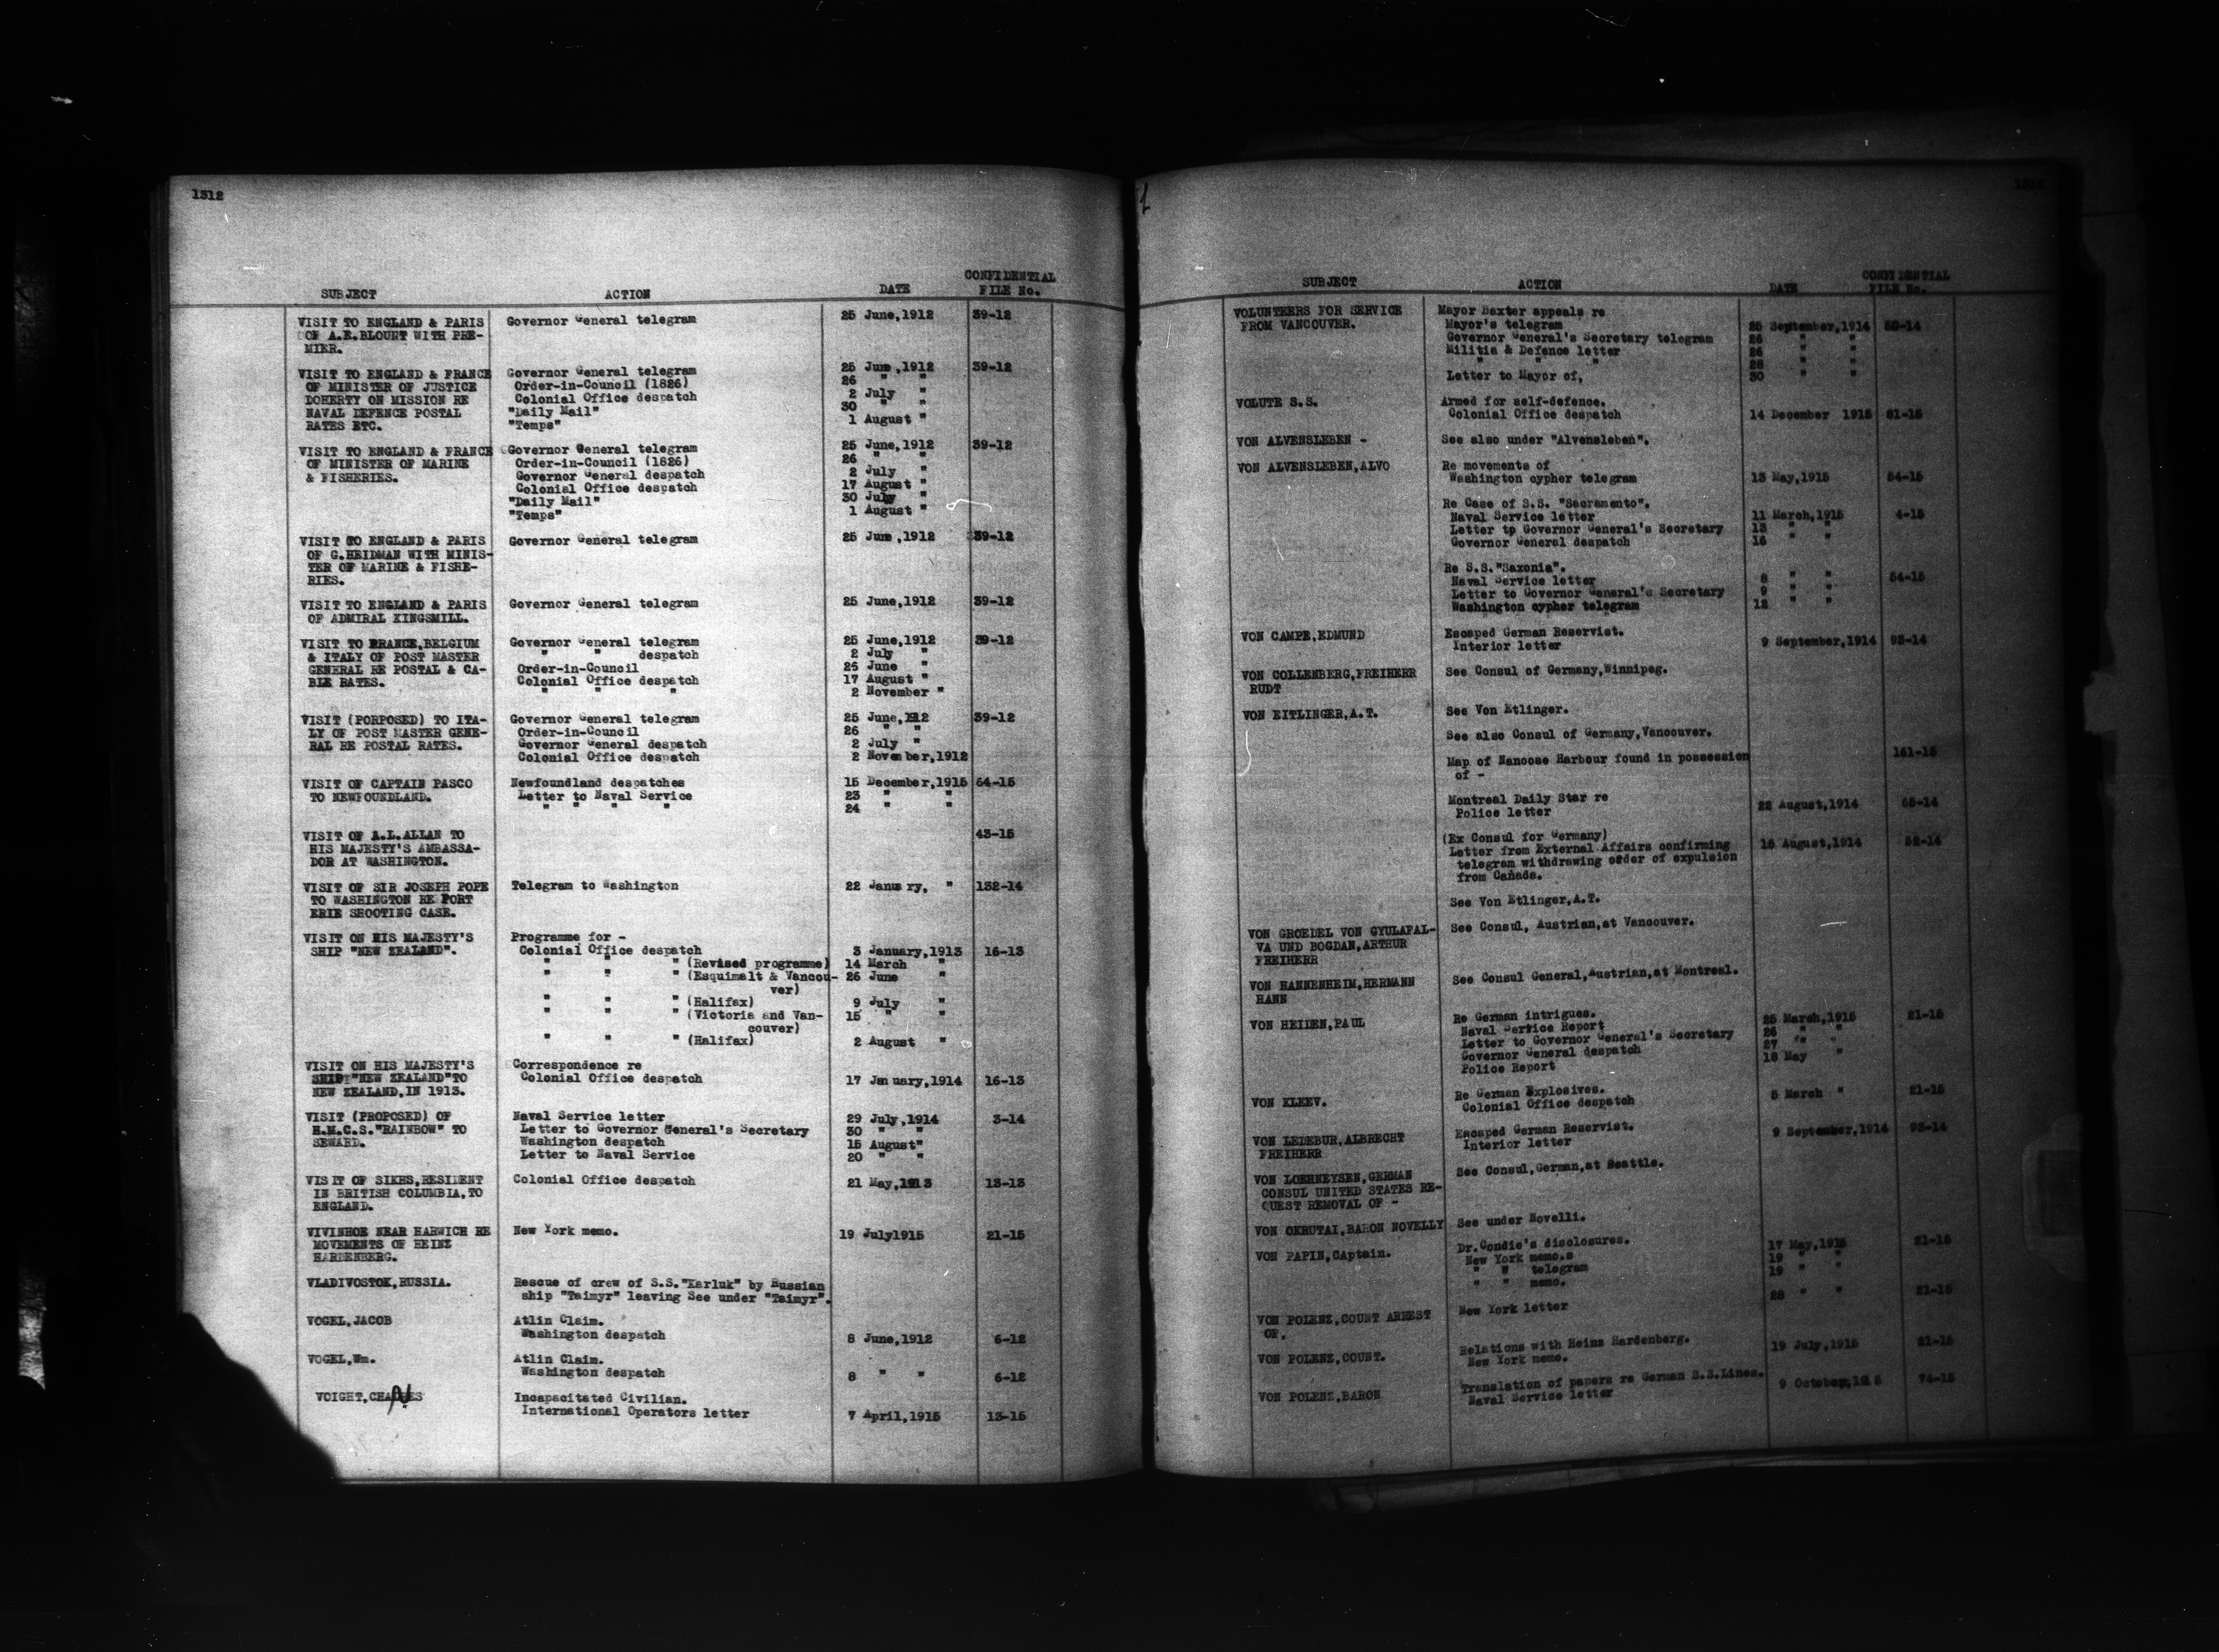 1312
SUBJECT ACTION DATE CONFIDENTIAL FILE No.
VISIT TO ENGLAND & PARIS Governor General telegram 25 June,1912 39-12
OF A.E.BLOUNT WITH PRE-
MIER.
VISIT TO ENGLAND & FRANCE Governor General telegram 25 June,1912 39-12
OF MINISTER OF JUSTICE Order-in-Council (1826) 26 " "
DOHERTY ON MISSION RE Colonial Office despatch 2 July "
NAVAL DEFENCE POSTAL "Daily Mail" 30 " "
RATES ETC. "Temps" 1 August "
VISIT TO ENGLAND & FRANCE Governor General telegram 25 June,1912 39-12
OF MINISTER OF MARINE Order-in-Council (1826) 26 " "
& FISHERIES. Governor General despatch 2 July "
Colonial Office despatch 17 August "
"Daily Mail" 30 July "
"Temps" 1 August "
VISIT TO ENGLAND & PARIS Governor General telegram 25 June,1912 39-12
OF G.HEIDMAN WITH MINIS-
TER OF MARINE & FISHE-
RIES.
VISIT TO ENGLAND & PARIS Governor General telegram 25 June,1912 39-12
OF ADMIRAL KINGSMILL.
VISIT TO FRANCE,BELGIUM Governor General telegram 25 June,1912 39-12
& ITALY OF POST MASTER " " despatch 2 July "
GENERAL RE POSTAL & CA- Order-in-Council 26 June "
BLE RATES. Colonial Office despatch 17 August "
" " " 2 November "
VISIT (PORPOSED) TO ITA- Governor General telegram 25 June,1912 39-12
LY OF POST MASTER GENE- Order-in-Council 26 " "
RAL RE POSTAL RATES. Governor General despatch 2 July "
Colonial Office despatch 2 November,1912
VISIT OF CAPTAIN PASCO Newfoundland despatches 15 December,1915 64-15
TO NEWFOUNDLAND. Letter to Naval Service 23 " "
" " " " 24 " "
VISIT OF A.L.ALLAN TO 43-15
HIS MAJESTY'S AMBASSA-
DOR AT WASHINGTON.
VISIT OF SIR JOSEPH POPE Telegram to Washington 22 January, " 132-14
TO WASHINGTON RE FORT
ERIE SHOOTING CASE.
VISIT ON HIS MAJESTY'S Programme for -
SHIP "NEW ZEALAND". Colonial Office despatch 3 January,1913 16-13
" " " (Revised programme) 14 March "
" " " (Esquimalt & Vancou- 26 June "
ver)
" " " (Halifax) 9 July "
" " " (Victoria and Van- 15 " "
couver)
" " " (Halifax) 2 August "
VISIT ON HIS MAJESTY'S Correspondence re
SHIP "NEW ZEALAND"TO Colonial Office despatch 17 January,1914 16-13
NEW ZEALAND,IN 1913.
VISIT (PROPOSED) OF Naval Service letter 29 July,1914 3-14
H.M.C.S."RAINBOW" TO Letter to Governor General's Secretary 30 " "
SEWARD. Washington despatch 15 August"
Letter to Naval Service 20 " "
VISIT OF SIKHS,RESIDENT Colonial Office despatch 21 May,1913 13-13
IN BRITISH COLUMBIA,TO
ENGLAND.
VIVINHOE NEAR HARWICH RE New York memo. 19 July1915 21-15
MOVEMENTS OF HEINZ
HARDENBERG.
VLADIVOSTOK,RUSSIA. Rescue of crew of S.S."Karluk" by Russian
ship "Taimyr" leaving See under "Taimyr".
VOGEL,JACOB Atlin Claim.
Washington despatch 8 June,1912 6-12
VOGEL,Wm. Atlin Claim.
Washington despatch 8 " " 6-12
VOIGHT,CHARLES Incapacitated Civilian.
International Operators letter 7 April,1915 13-15
SUBJECT ACTION DATE CONFIDENTIAL FILE No.
VOLUNTEERS FOR SERVICE Mayor Baxter appeals re
FROM VANCOUVER. Mayor's telegram 25 September,1914
Governor General's Secretary telegram 26 " "
Militia & Defence letter 26 " "
" " " 28 " "
Letter to Mayor of, 30 " "
VOLUTE S.S. Armed for self-defence.
Colonial Office despatch 14 December 1915 81-15
VON ALVENSLEBEN - See also under "Alvensleben".
VON ALVENSLEBEN,ALVO Re movements of
Washington cypher telegram 13 May,1915 54-15
Re Case of S.S. "Sacramento".
Naval Service letter 11 March,1915 4-15
Letter to Governor General's Secretary 13 " "
Governor General despatch 16 " "
Re S.S."Saxonia".
Naval Service letter 8 " " 54-15
Letter to Governor General's Secretary 9 " "
Washington cypher telegram 12 " "
VON CAMPE,EDMUND Escaped German Reservist.
Interior letter 9 September,1914 93-14
VON COLLENBERG,FREIHERR See Consul of Germany,Winnipeg.
RUDT
VON EITLINGER,A.T. See Von Etlinger.
See also Consul of Germany,Vancouver.
Map of Nanoose Harbour found in possession 161-15
of -
Montreal Daily Star re 22 August,1914 65-14
Police letter
(Ex Consul for Germany)
Letter from External Affairs confirming 15 August,1914 52-14
telegram withdrawing order of expulsion
from Canada.
See Von Etlinger,A.T.
VON GROEDEL VON GYULAFAL- See Consul, Austrian,at Vancouver.
VA UND BOGDAN,ARTHUR
FREIHERR
VON HANNENHEIM,HERMANN See Consul General,Austrian,at Montreal.
HANN
VON HEIDEN,PAUL Re German intrigues.
Naval Service Report 25 March,1915 21-15
Letter to Governor General's Secretary 26 " "
Governor General despatch 27 " "
Police Report 18 May "
VON KLEEV. Re German Explosives.
Colonial Office despatch 5 March " 21-15
VON LEDEBUR,ALBRECHT Escaped German Reservist.
FREIHERR Interior letter 9 September,1914 93-14
VON LOEHNEYSEN,GERMAN See Consul,German,at Seattle.
CONSUL UNITED STATES RE-
QUEST REMOVAL OF -
VON OKRUTAI,BARON NOVELLY See under Novelli.
VON PAPIN,CAptain. Dr.Condie's disclosures.
New York memo.s 17 May,1915 21-15
" " telegram 19 " "
" " memo. 19 " "
VON POLENZ,COUNT ARREST New York letter 28 " " 21-15
OF.
VON POLENZ,COUNT. Relations with Heinz Hardenberg.
New York memo. 19 July,1915 21-15
VON POLENZ,BARON Translation of papers re German S.S.Lines.
Naval Service letter 9 October,1915 74-15